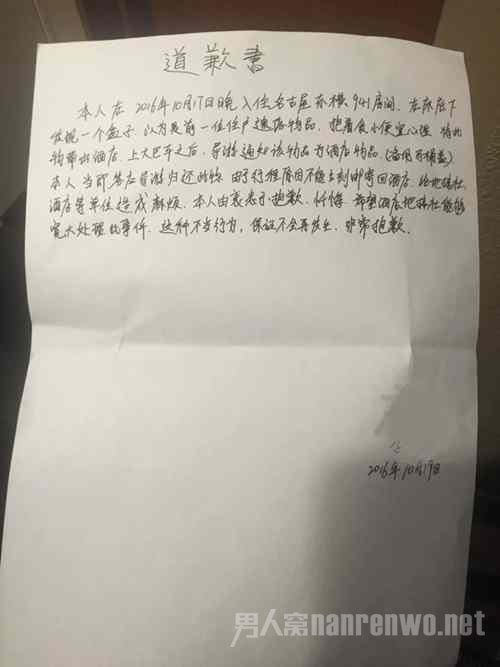 道歉書
本人在2016年10月17日晚入住名古屋东横941房间,在床底下
发现一个盒子,以为是前一位住户遗落物品,抱着贪小便宜心理将此
物带出酒店,上大巴车之后,导游通知该物品为酒店物品,(
本人当即答应导游归还此物,由于行程原因不能立刻邮寄回酒店,给地接社
酒店等单位造成麻烦,本人由衷表示抱歉,忏悔,希望酒店地接社能够
宽大处理此事件,这种不当行为,保证不会再发生,非常抱歉.
2016年10月19日
男人窝nanrenwo.net